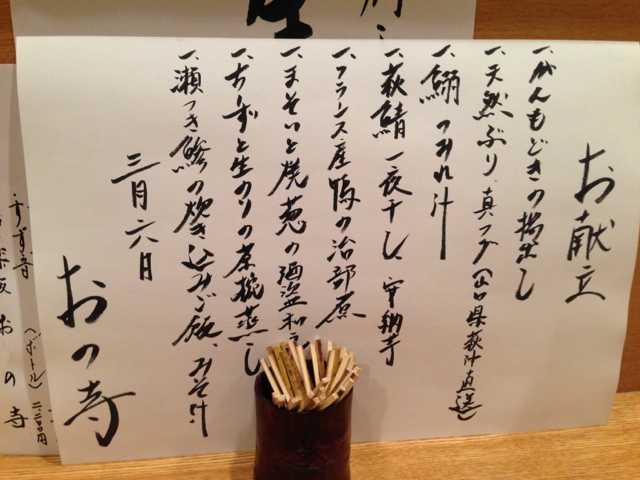 お献立
一、がんもどきの揚出し
一、天然ぶり、真フグ(山口県萩沖直送)
一、鰯つみれ汁
一、萩鯖一夜干し、安納芋
一、フランス産鴨の治部煮
一、まそいと焼葱の酒盗和え
一、あずと生のりの茶椀蒸し
一、瀬つき鯵の炊き込みご飯、みそ汁
三月六日
おの寺
(ボトル)二、二〇〇円
おの寺